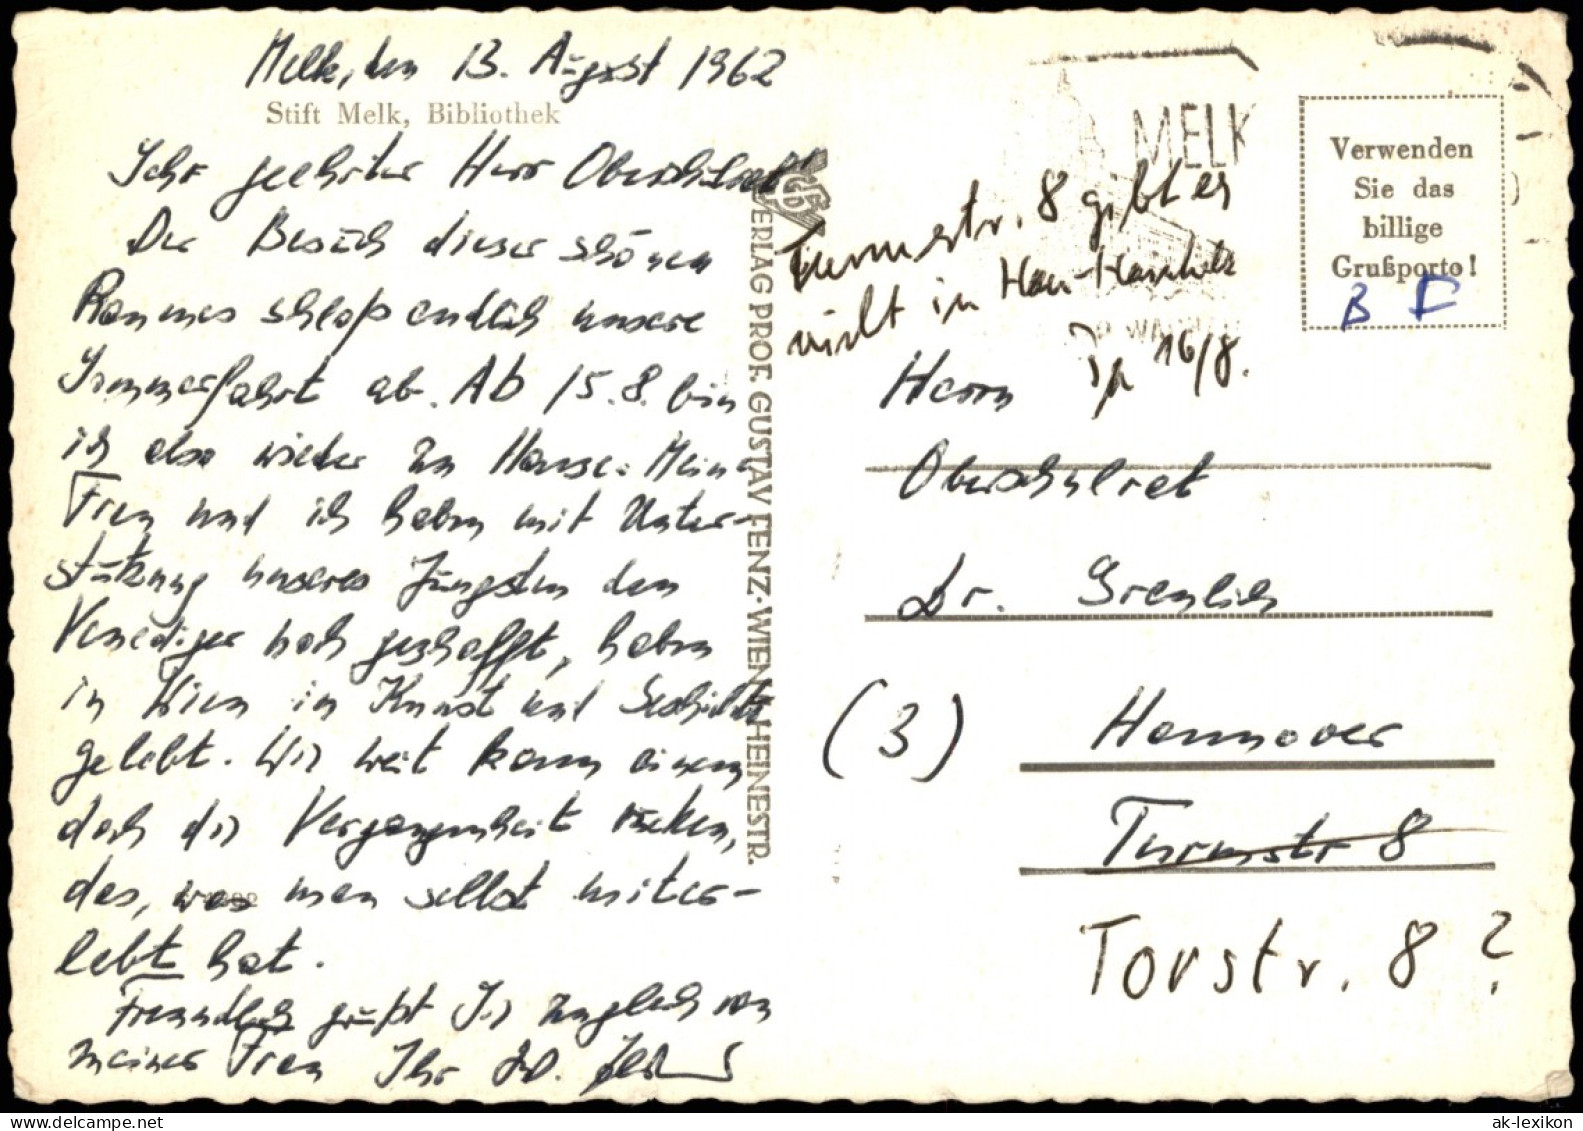 Melk, den 13. August 1962
Stift Melk, Bibliothek
Sehr geehrter Herr Oberschulrat
Der Besuch dieser schönen
Raumes schloß endlich unsere
Sommerfahrt ab. Ab 15.8. bin
ich also wieder zu Hause. Meine
Frau und ich haben mit Unter-
stützung unseres Jüngsten den
Venediger noch geschafft, haben
in Wien in Kunst und Geschichte
gelebt. Wie weit kann einem
doch die Vergangenheit rücken,
das, was man selbst miter-
lebt hat.
Freundlich grüßt Sie zugleich von
meiner Frau Ihr
VERLAG PROF. GUSTAV FENZ·WIEN, HEINESTR.
MELK
Turmstr. 8 gibt es
nicht in Han-
16/8.
Verwenden
Sie das
billige
Grußporto!
B F
Herrn
Oberschulrat
Dr. Greulich
(3) Hannover
Turmstr 8
Torstr. 8 ?
ak-lexikon